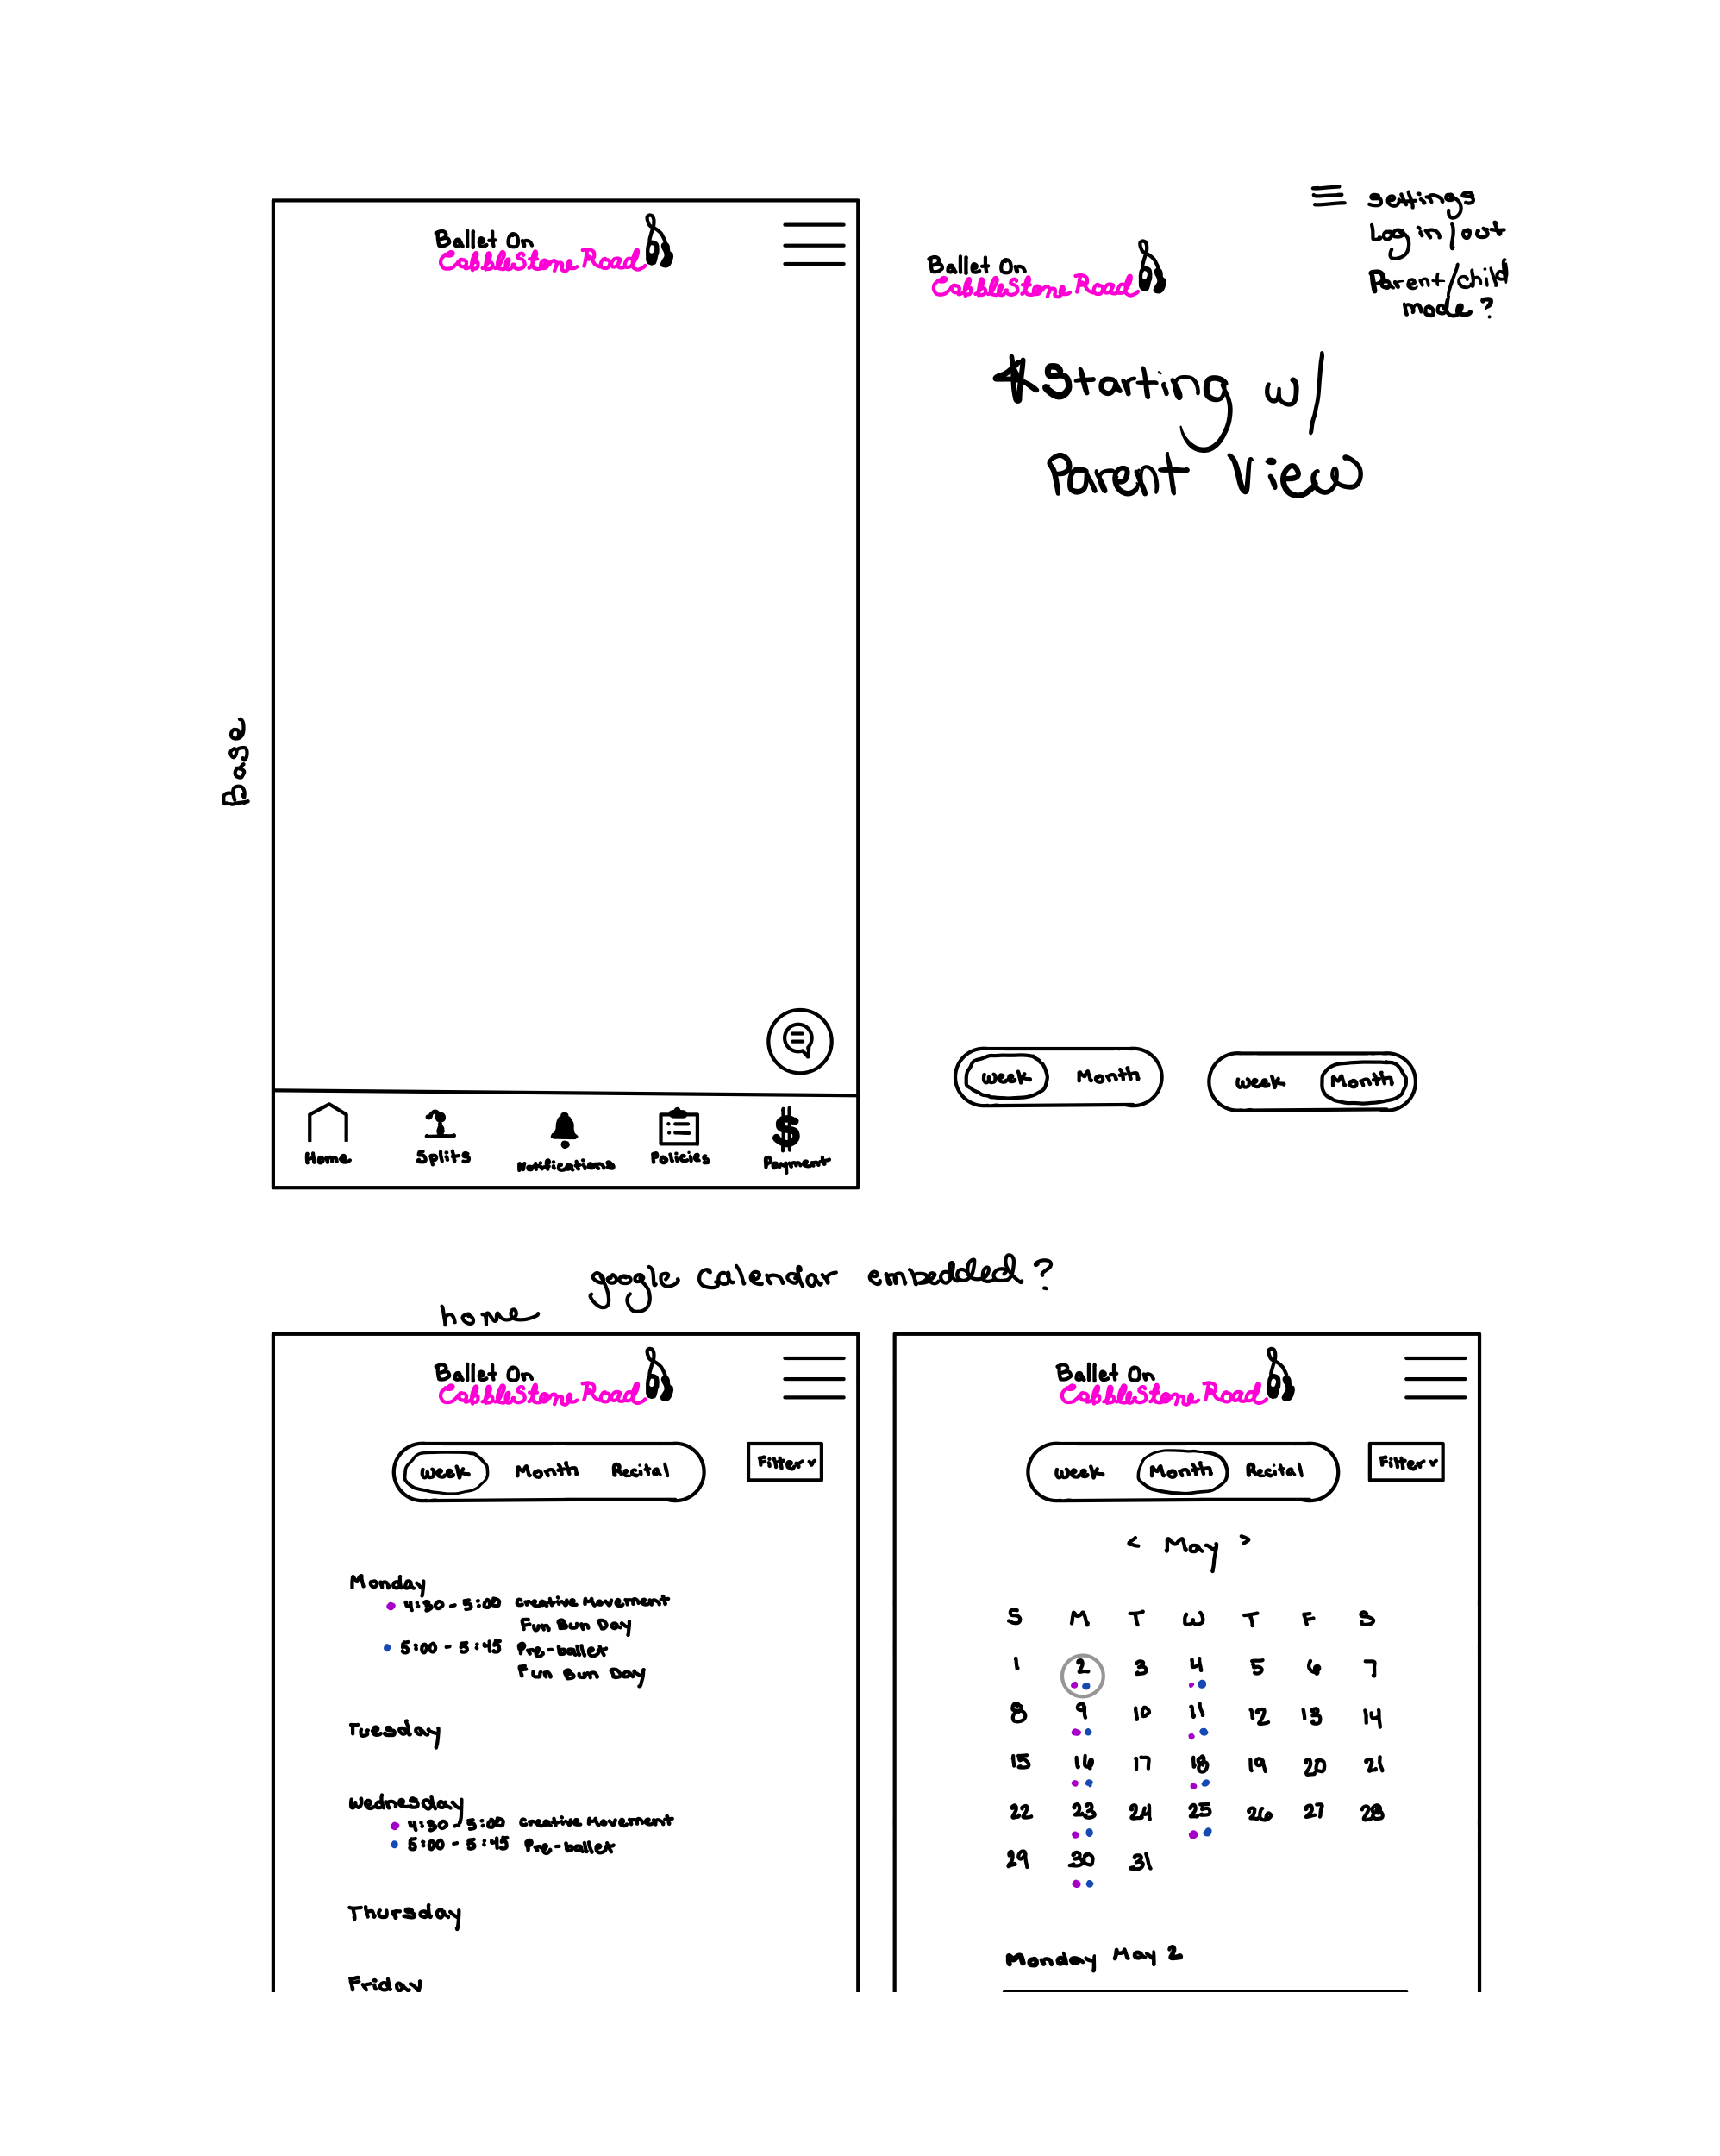 Ballet On
CobbleStone Road
Ballet On
CobbleStone Road
settings
Log in/out
Parent/child
mode?
*Starting w/
Parent View
Base
Week Month
Week Month
Home Splits Notifications Policies Payment
$
google calendar embedded?
home
Ballet On
CobbleStone Road
Week Month Recital Filter
Monday
4:30 - 5:00 Creative Movement
Fun Bun Day
5:00 - 5:45 Pre-ballet
Fun Bun Day
Tuesday
Wednesday
4:30 - 5:00 Creative Movement
5:00 - 5:45 Pre-ballet
Thursday
Friday
Ballet On
CobbleStone Road
Week Month Recital Filter
< May >
S M T W T F S
1 2 3 4 5 6 7
8 9 10 11 12 13 14
15 16 17 18 19 20 21
22 23 24 25 26 27 28
29 30 31
Monday May 2